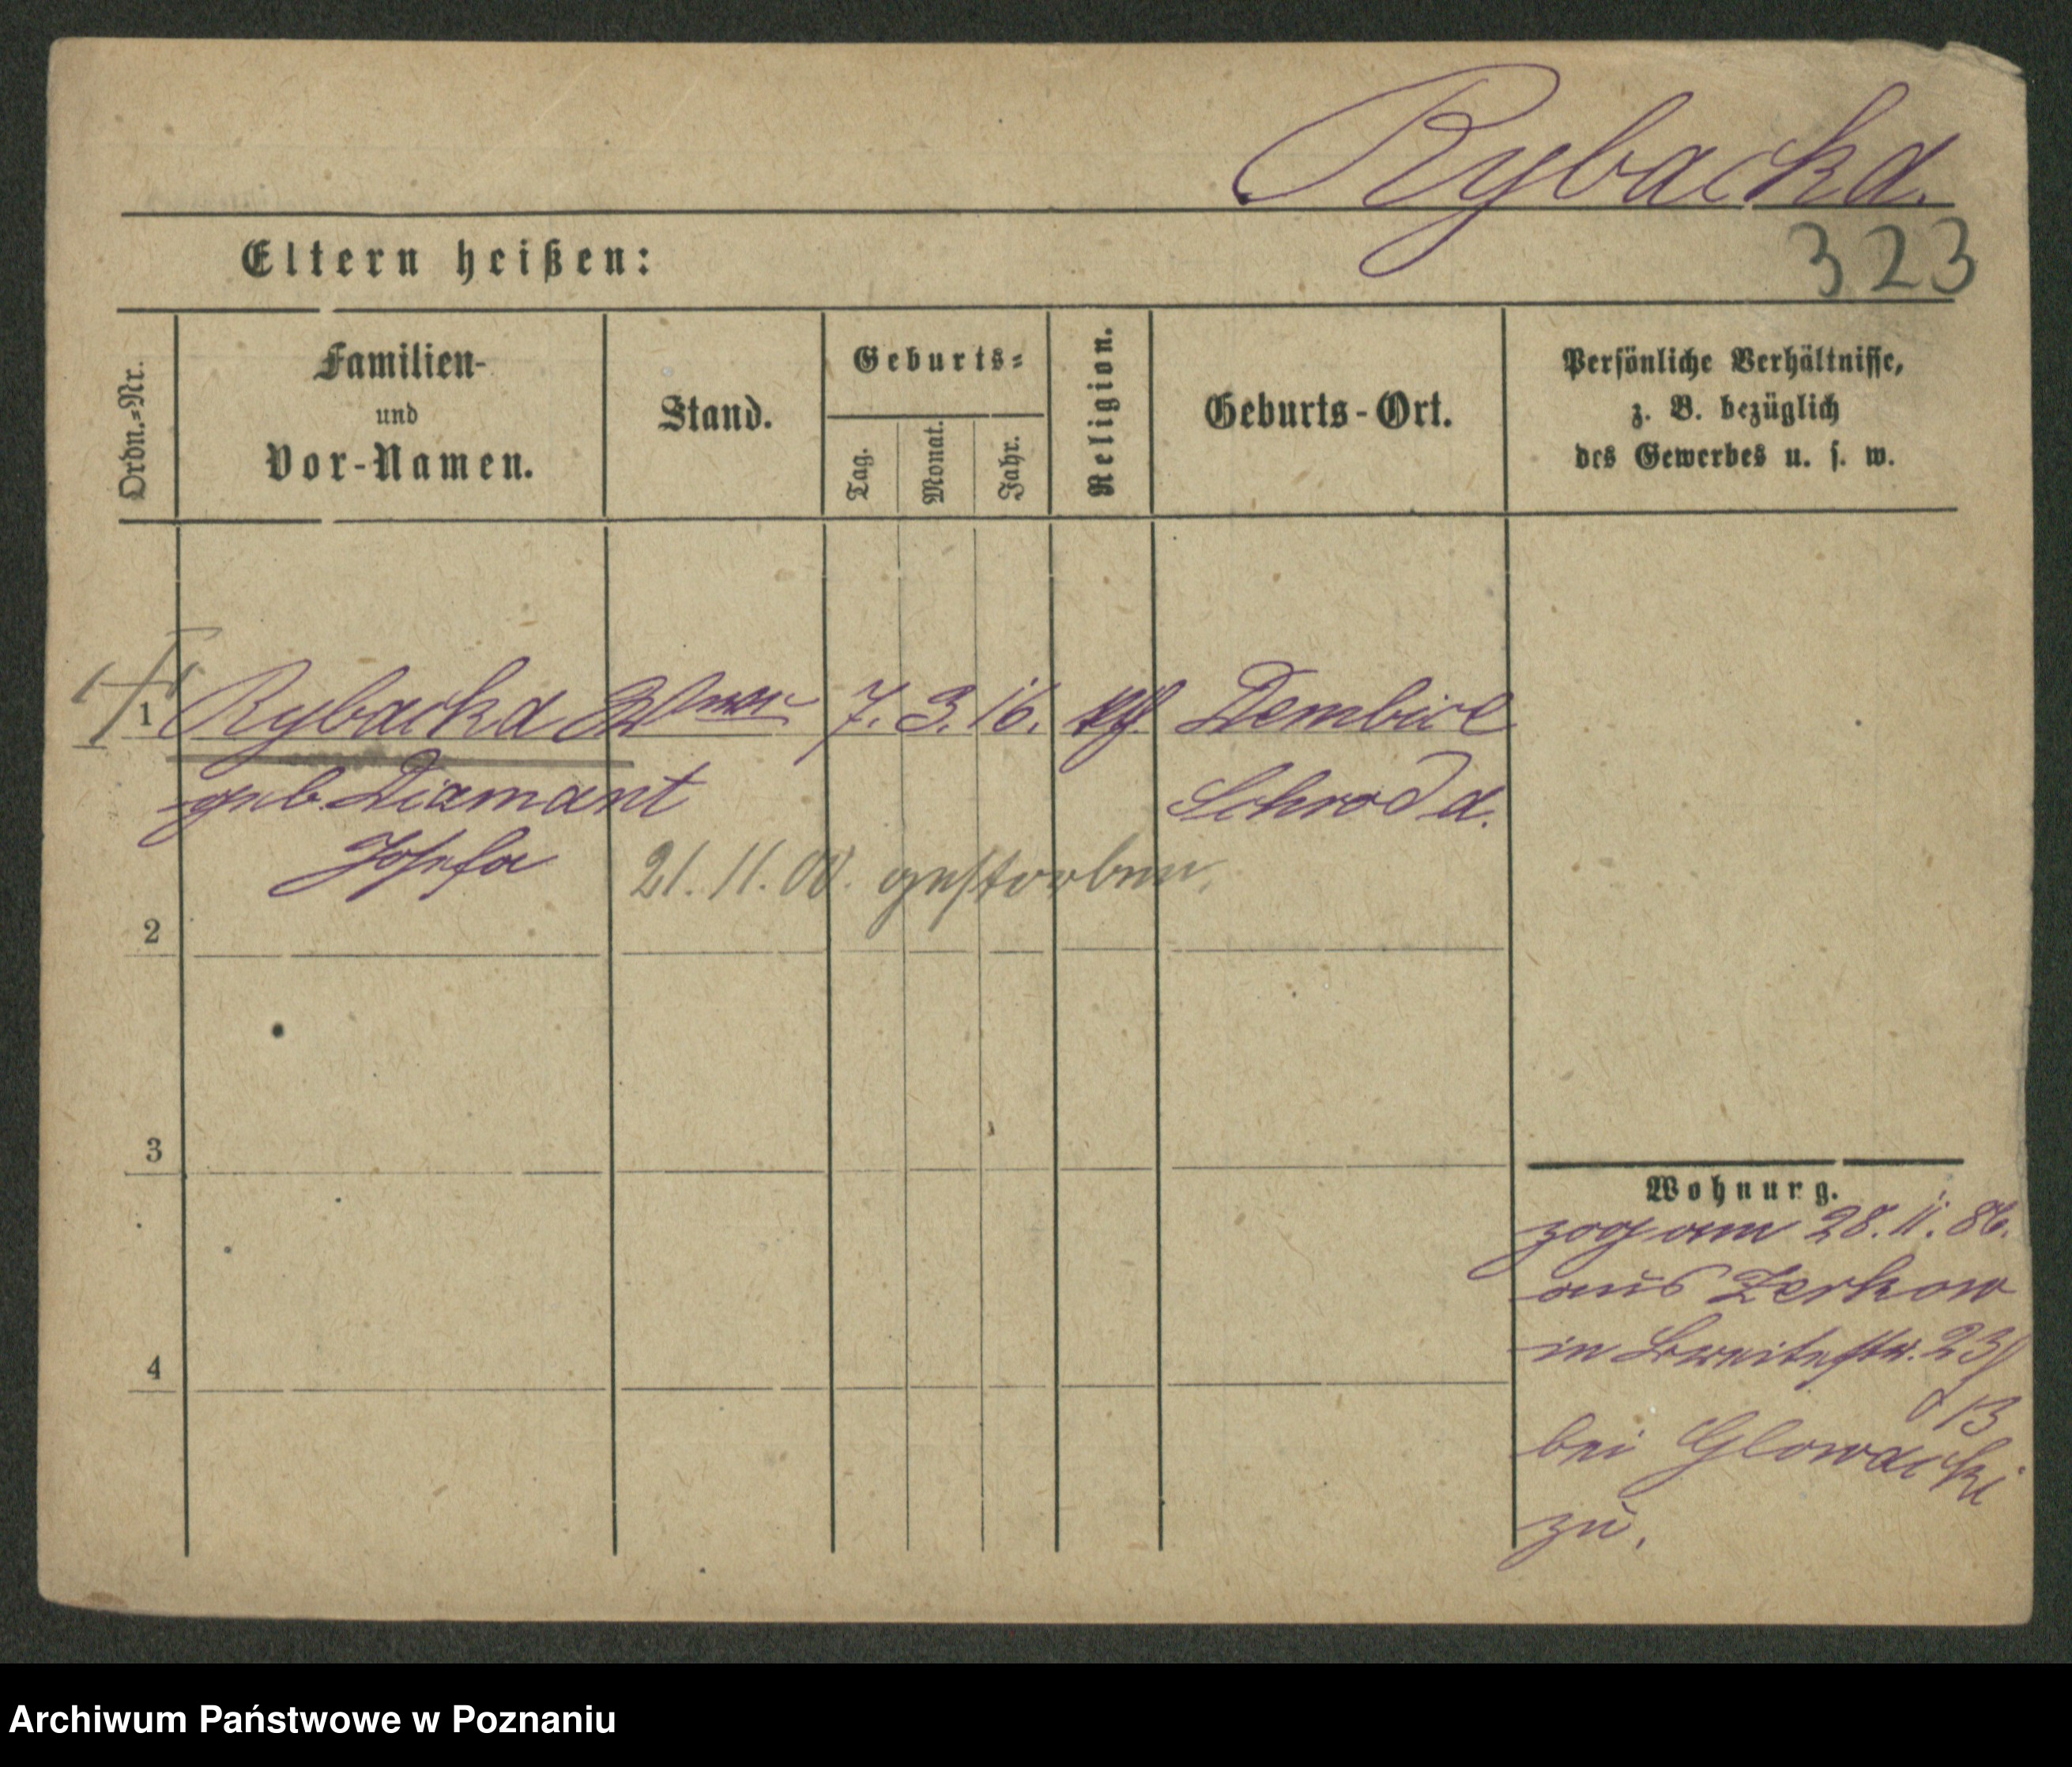 Rybacka.
323
Eltern heißen:
Ordn.-Nr.
Familien-
und
Vor-Namen.
Stand.
Geburts-
Tag.
Monat.
Jahr.
Religion.
Geburts-Ort.
Persönliche Verhältnisse,
z. B. bezüglich
des Gewerbes u. s. w.
1 Rybacka Wwe 7. 3. 16. kth. Dembicz
geb. Diamant Schroda.
Josefa 21. 11. 00. gestorben.
2
3
4
Wohnung.
zog am 28. 11. 86.
aus Zerkow
in Breitestr. 23/
13
bei Glowacki
zu.
Archiwum Państwowe w Poznaniu